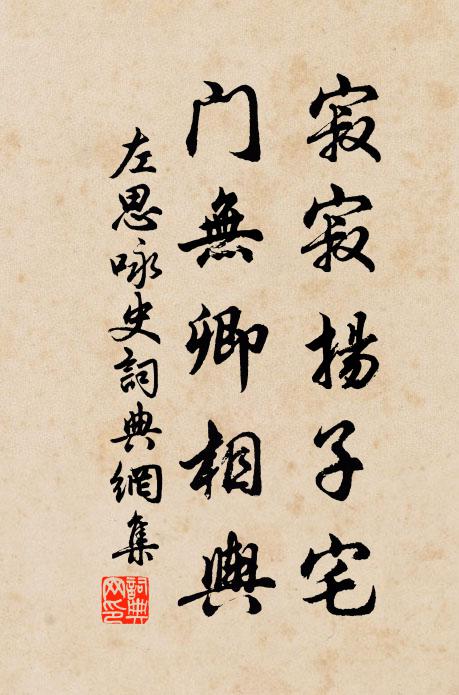 寂寂揚子宅
門無卿相輿
左思咏史詞典網集
詞典
网印